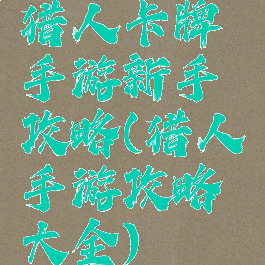 猎人卡牌
手游新手
攻略(猎人
手游攻略
大全)